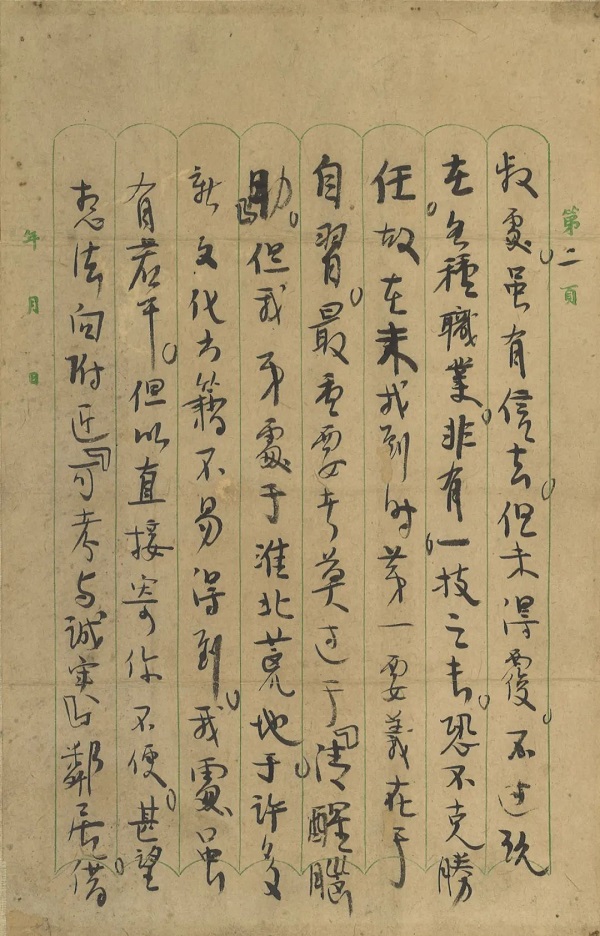 第二頁
叔處。虽有信去。但未得覆。不过现
在各種職業。非有一技之长。恐不克勝
任。故在未找到时第一要義在于
自習。最重要者莫过于「清醒腦
助」。但我弟處于淮北荒地于许多
新文化书籍不易得到。我處虽
有若干。但以直接寄你不便。甚望
想法向附近「可考与誠实」鄰居借。
年 月 日